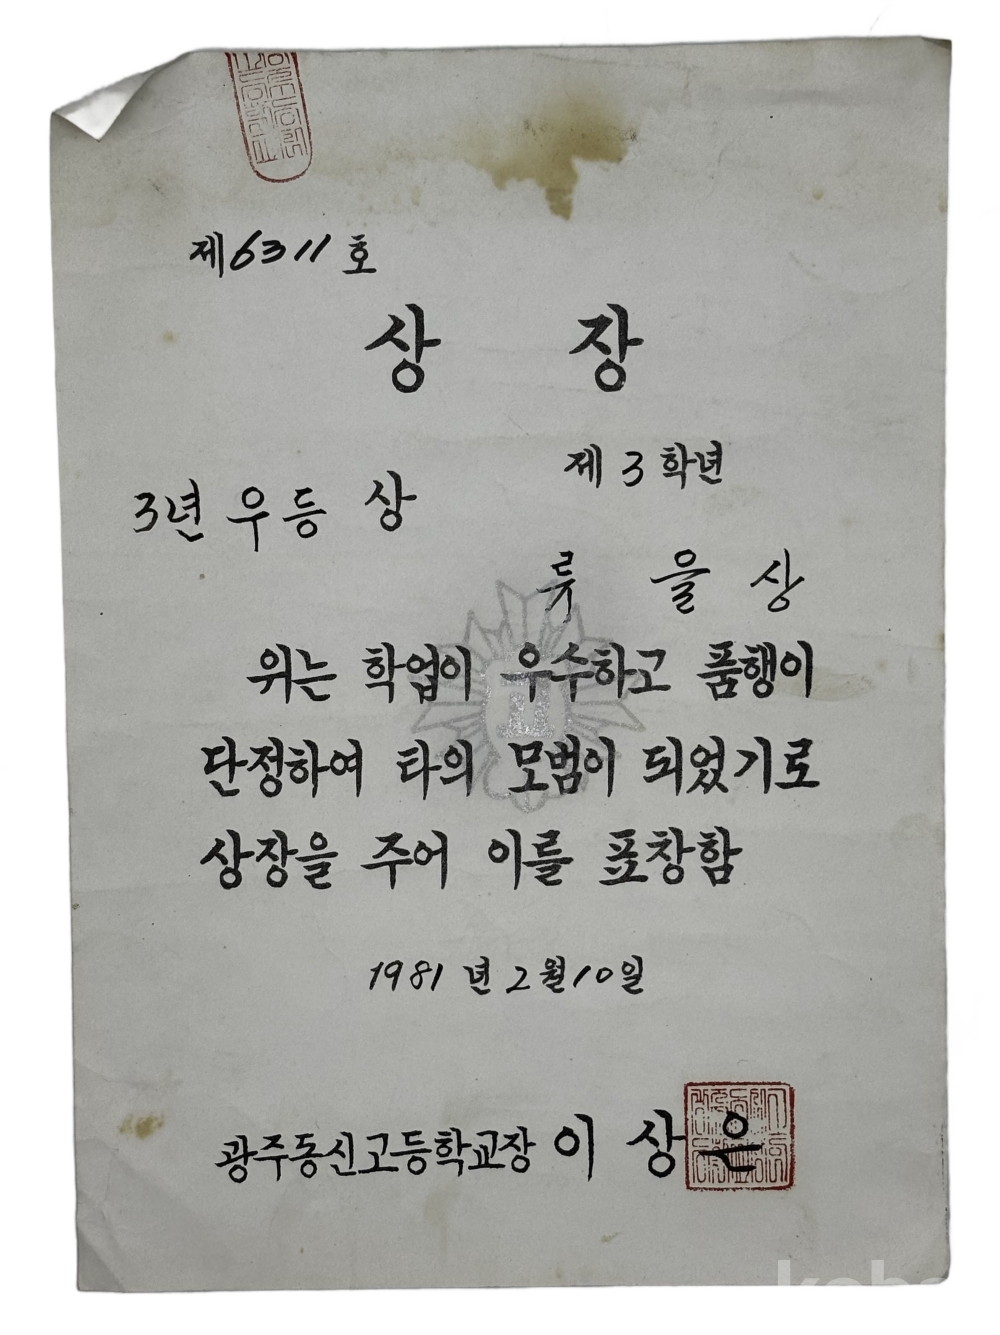 제6311호
상 장
제 3 학년
3년 우등 상
류 을 상
위는 학업이 우수하고 품행이
단정하여 타의 모범이 되었기로
상장을 주어 이를 표창함
1981년 2월 10일
광주동신고등학교장 이 상 은